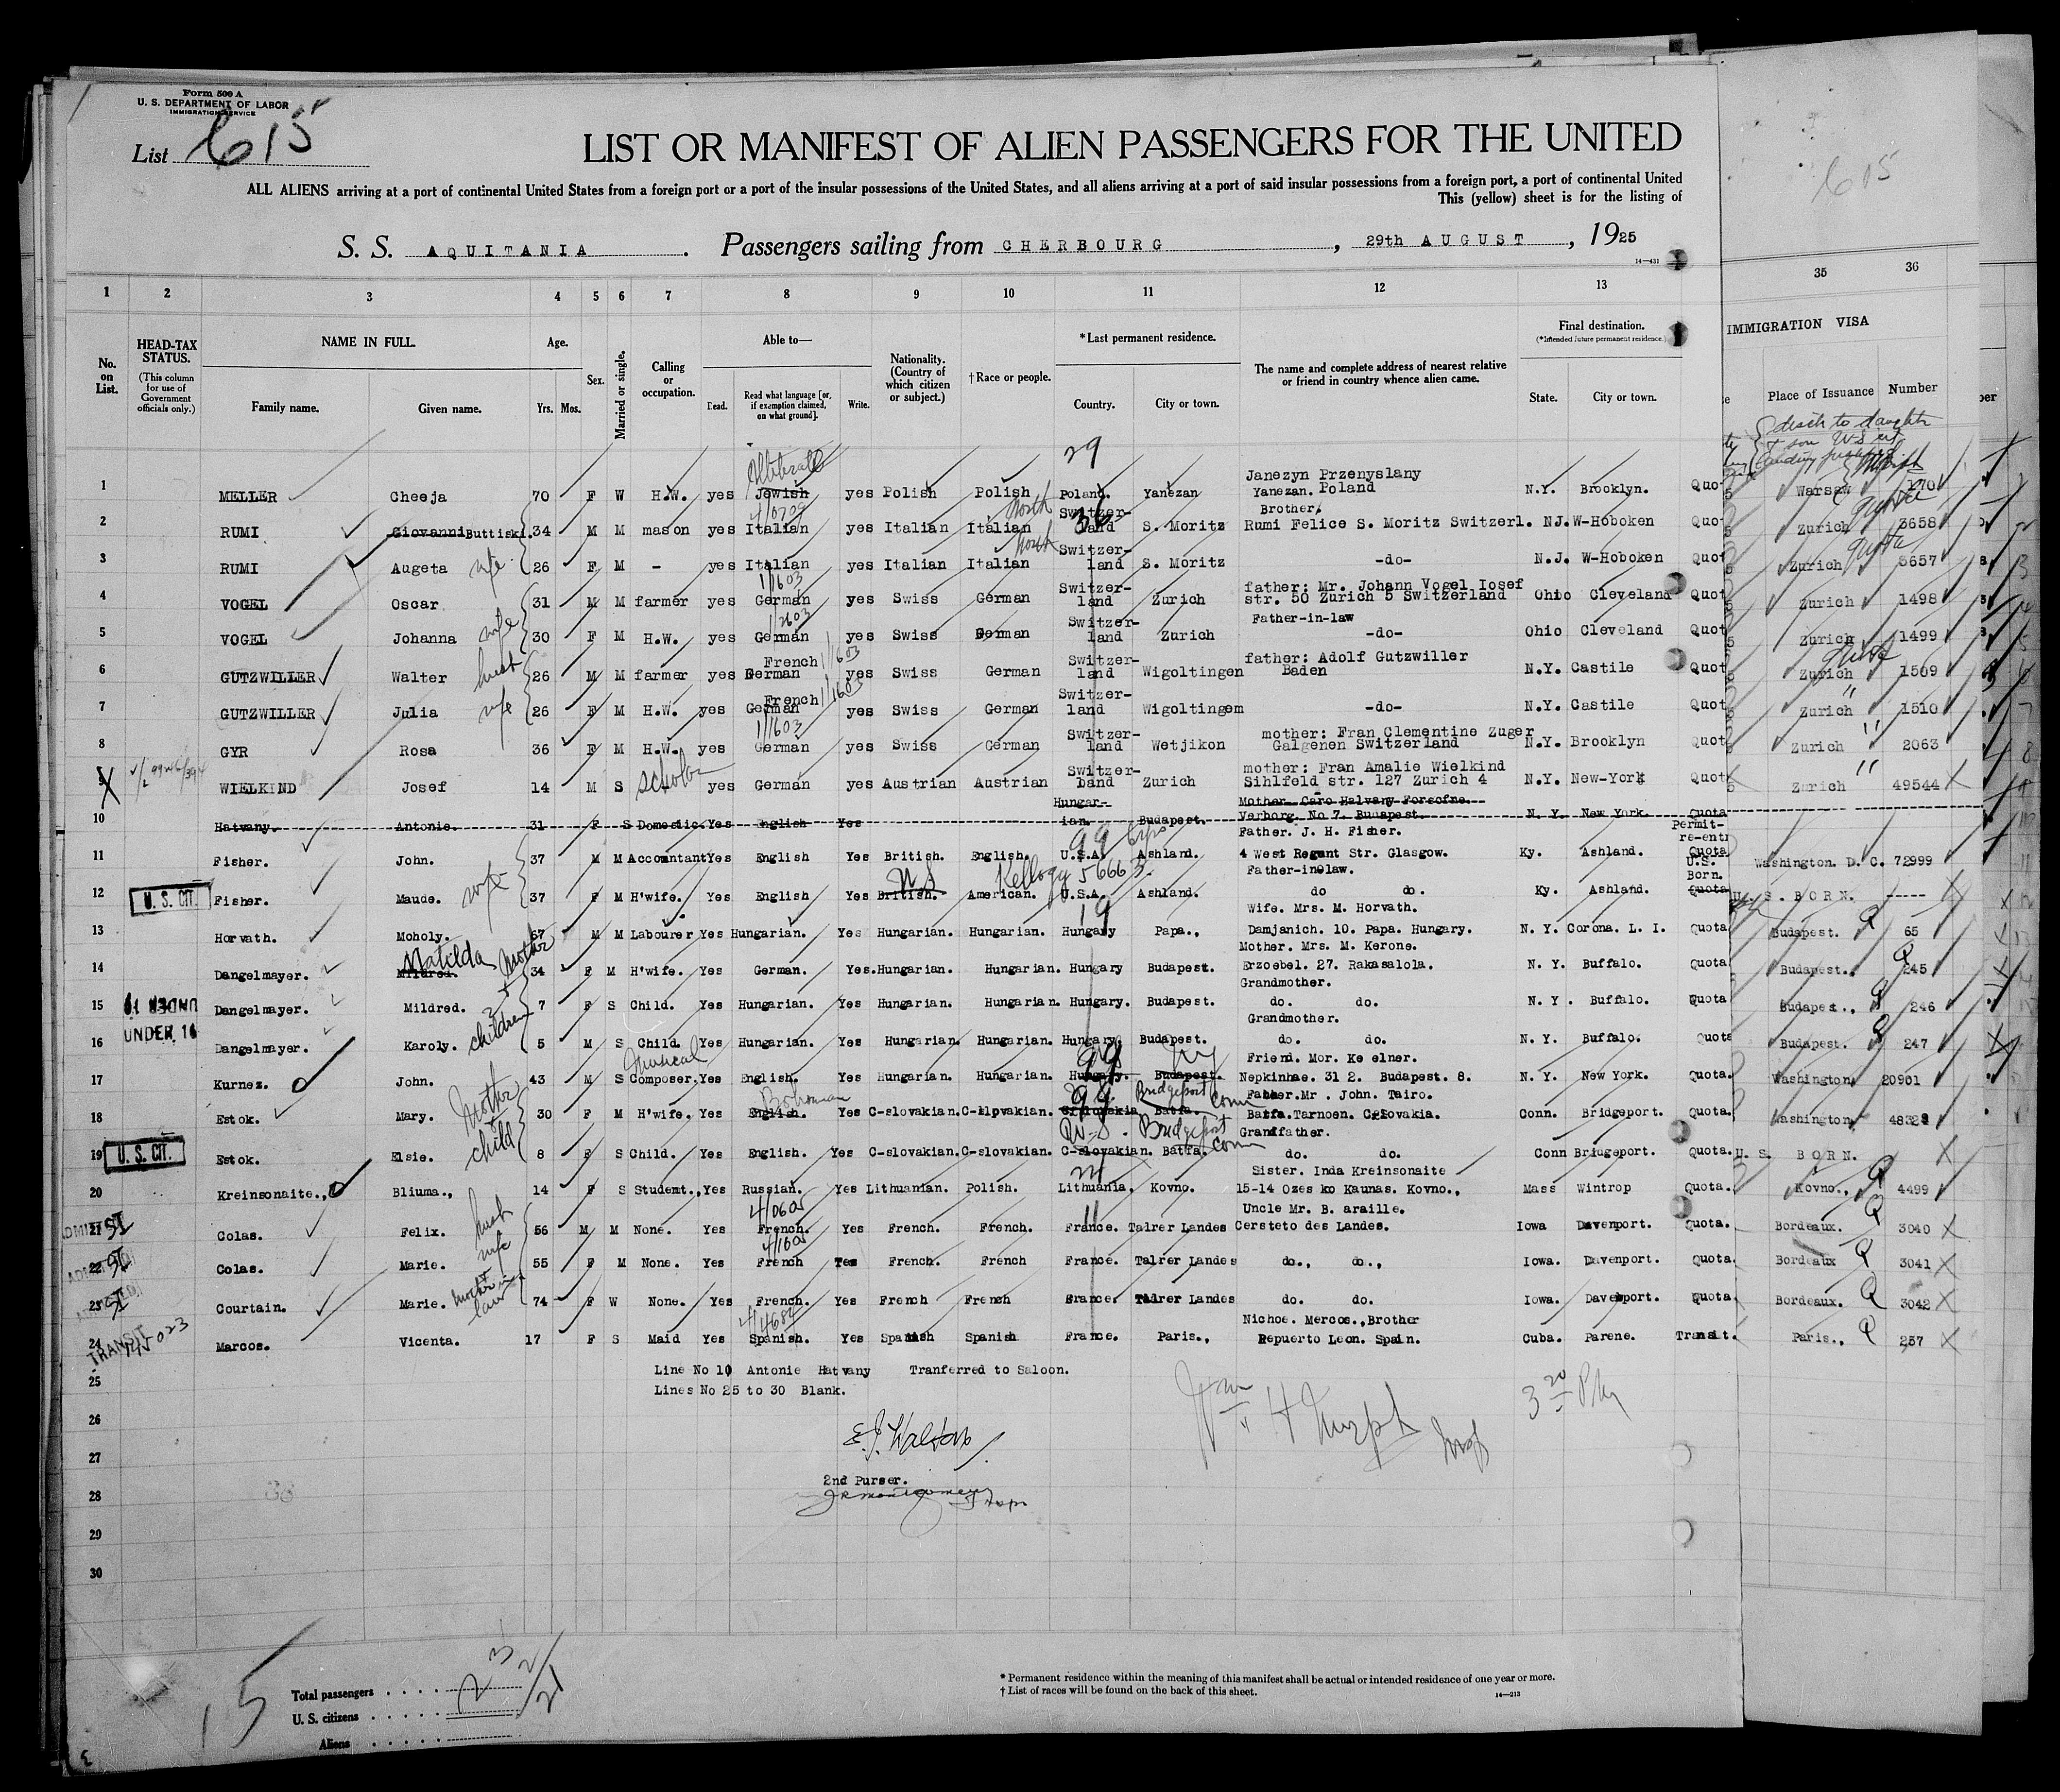 Form 500 A
U. S. DEPARTMENT OF LABOR
IMMIGRATION SERVICE
List 615
LIST OR MANIFEST OF ALIEN PASSENGERS FOR THE UNITED
ALL ALIENS arriving at a port of continental United States from a foreign port or a port of the insular possessions of the United States, and all aliens arriving at a port of said insular possessions from a foreign port, a port of continental United
This (yellow) sheet is for the listing of
S. S. AQUITANIA. Passengers sailing from CHERBOURG, 29th AUGUST, 1925
14—431
615
1 2 3 4 5 6 7 8 9 10 11 12 13 35 36
IMMIGRATION VISA
No. on List.
HEAD-TAX STATUS.
(This column for use of Government officials only.)
NAME IN FULL.
Family name. Given name.
Age.
Yrs. Mos.
Sex.
Married or single.
Calling or occupation.
Able to—
Read. Read what language [or, if exemption claimed, on what ground]. Write.
Nationality. (Country of which citizen or subject.)
†Race or people.
*Last permanent residence.
Country. City or town.
The name and complete address of nearest relative or friend in country whence alien came.
Final destination.
(*Intended future permanent residence.)
State. City or town.
Place of Issuance Number
29
Janezyn Przenyslany
1 MELLER Cheeja 70 F W H.W. yes Jewish yes Polish Polish Poland. Yanezan Yanezan. Poland N.Y. Brooklyn. Quo Warsaw 170
Brother,
North Switzer-
2 RUMI Giovanni Buttiski. 34 M M mason yes Italian yes Italian Italian land S. Moritz Rumi Felice S. Moritz Switzerl. NJ. W-Hoboken Quo Zurich 3658
North Switzer-
3 RUMI Augeta wife 26 F M - yes Italian yes Italian Italian land S. Moritz -do- N.J. W-Hoboken Quot Zurich 3657
1/1603 Switzer- father: Mr. Johann Vogel Iosef
4 VOGEL Oscar 31 M M farmer yes German yes Swiss German land Zurich str. 50 Zurich 5 Switzerland Ohio Cleveland Quot Zurich 1498
Switzer- Father-in-law
5 VOGEL Johanna wife 30 F M H.W. yes German yes Swiss German land Zurich -do- Ohio Cleveland Quot Zurich 1499
French 1/1603 Switzer- father: Adolf Gutzwiller
6 GUTZWILLER Walter husb 26 M M farmer yes German yes Swiss German land Wigoltingen Baden N.Y. Castile Quot Zurich 1509
French 1/1603 Switzer-
7 GUTZWILLER Julia wife 26 F M H.W. yes German yes Swiss German land Wigoltingem -do- N.Y. Castile Quot Zurich 1510
1/1603 Switzer- mother: Fran Clementine Zuger
8 GYR Rosa 36 F M H.W. yes German yes Swiss German land Wetjikon Galgenen Switzerland N.Y. Brooklyn Quot Zurich 2063
Switzer- mother: Fran Amalie Wielkind
9 WIELKIND Josef 14 M S scholar yes German yes Austrian Austrian land Zurich Sihlfeld str. 127 Zurich 4 N.Y. New-York Quot Zurich 49544
Hungar- Mother. Caro Halvany Forsofne.
10 Hatvany. Antonie. 31 F S Domestic. Yes English Yes ian. Budapest. Varborg. No 7. Budapest. N. Y. New York. Quota
99 Father. J. H. Fisher. Permit- re-ent
11 Fisher. John. 37 M M Accountant Yes English Yes British. English. U.S.A. Ashland. 4 West Regant Str. Glasgow. Ky. Ashland. Quota Washington. D. C. 72999
Kellogg 56663. Father-in law. U.S. Born.
12 U. S. CIT. Fisher. Maude. wife 37 F M H'wife. Yes English Yes British. US American. U.S.A. Ashland. do do. Ky. Ashland. Quota U. S. BORN. -----
19 Wife. Mrs. M. Horvath.
13 Horvath. Moholy. 67 M M Labourer Yes Hungarian. Yes Hungarian. Hungarian. Hungary Papa., Damjanich. 10. Papa. Hungary. N. Y. Corona. L. I. Quota Budapest. 65
Matilda mother Mother. Mrs. M. Kerone.
14 Dangelmayer. Mildred. 34 F M H'wife. Yes German. Yes. Hungarian. Hungarian. Hungary Budapest. Erzoebel. 27. Rakasalola. N. Y. Buffalo. Quota Budapest. 245
Grandmother.
15 UNDER 16 Dangelmayer. Mildred. 7 F S Child. Yes Hungarian. Yes Hungarian. Hungarian. Hungary. Budapest. do. do. N. Y. Buffalo. Quota Budapest., 246
UNDER 16 children Grandmother.
16 Dangelmayer. Karoly. 5 M S Child. Yes Hungarian. Yes Hungarian. Hungarian. Hungary. Budapest. do. do. N. Y. Buffalo. Quota Budapest. 247
Musical 99 NY Friend. Mor. Ke elner.
17 Kurnez. John. 43 M S Composer. Yes English. Yes Hungarian. Hungarian. Hungary. Budapest. Nepkinhae. 31 2. Budapest. 8. N. Y. New York. Quota. Washington 20901
Mother Bohemian 99 Bridgeport Conn Father. Mr. John. Tairo.
18 Estok. Mary. 30 F M H'wife. Yes English. Yes C-slovakian. C-slovakian. C-slovakia Batfa. Batfa. Tarnoen. C-slovakia. Conn. Bridgeport. Quota. Washington 48323
child Bridgeport Conn Grandfather.
19 U. S. CIT. Estok. Elsie. 8 F S Child. Yes English. Yes C-slovakian. C-slovakian. C-slovakian. Batfa. do. do. Conn Bridgeport. Quota. U. S. BORN.
24 Sister. Inda Kreinsonaite
20 Kreinsonaite., Bliuma., 14 F S Student., Yes Russian. Yes Lithuanian. Polish. Lithuania. Kovno. 15-14 Ozes ko Kaunas. Kovno., Mass Wintrop Quota. Kovno., 4499
4/0605 11 Uncle Mr. B. araille.
21 ADMITTED SI Colas. Felix. husb 56 M M None. Yes French. Yes French. French. France. Talrer Landes Cersteto des Landes. Iowa Davenport. Quota. Bordeaux. 3040
4/1605
22 ADMITTED SI Colas. Marie. wife 55 F M None. Yes French Yes French. French France. Talrer Landes do., do., Iowa. Davenport. Quota. Bordeaux 3041
23 ADMITTED SI Courtain. Marie. mother in law 74 F W None. Yes French. Yes French French France. Talrer Landes do. do. Iowa. Davenport. Quota. Bordeaux. 3042
Nichoe. Mercos., Brother
24 TRANSIT Marcos. Vicenta. 17 F S Maid Yes Spanish. Yes Spanish Spanish France. Paris., Repuerto Leon. Spain. Cuba. Parene. Transit. Paris., 257
Line No 10 Antonie Hatvany Tranferred to Saloon.
25 Lines No 25 to 30 Blank.
26
E.J. Walton.
27
2nd Purser.
28
29
30
3 20 PM
Total passengers . . . . 23
U. S. citizens . . . . . 2/21
Aliens . . . . .
15
* Permanent residence within the meaning of this manifest shall be actual or intended residence of one year or more.
† List of races will be found on the back of this sheet. 14—213